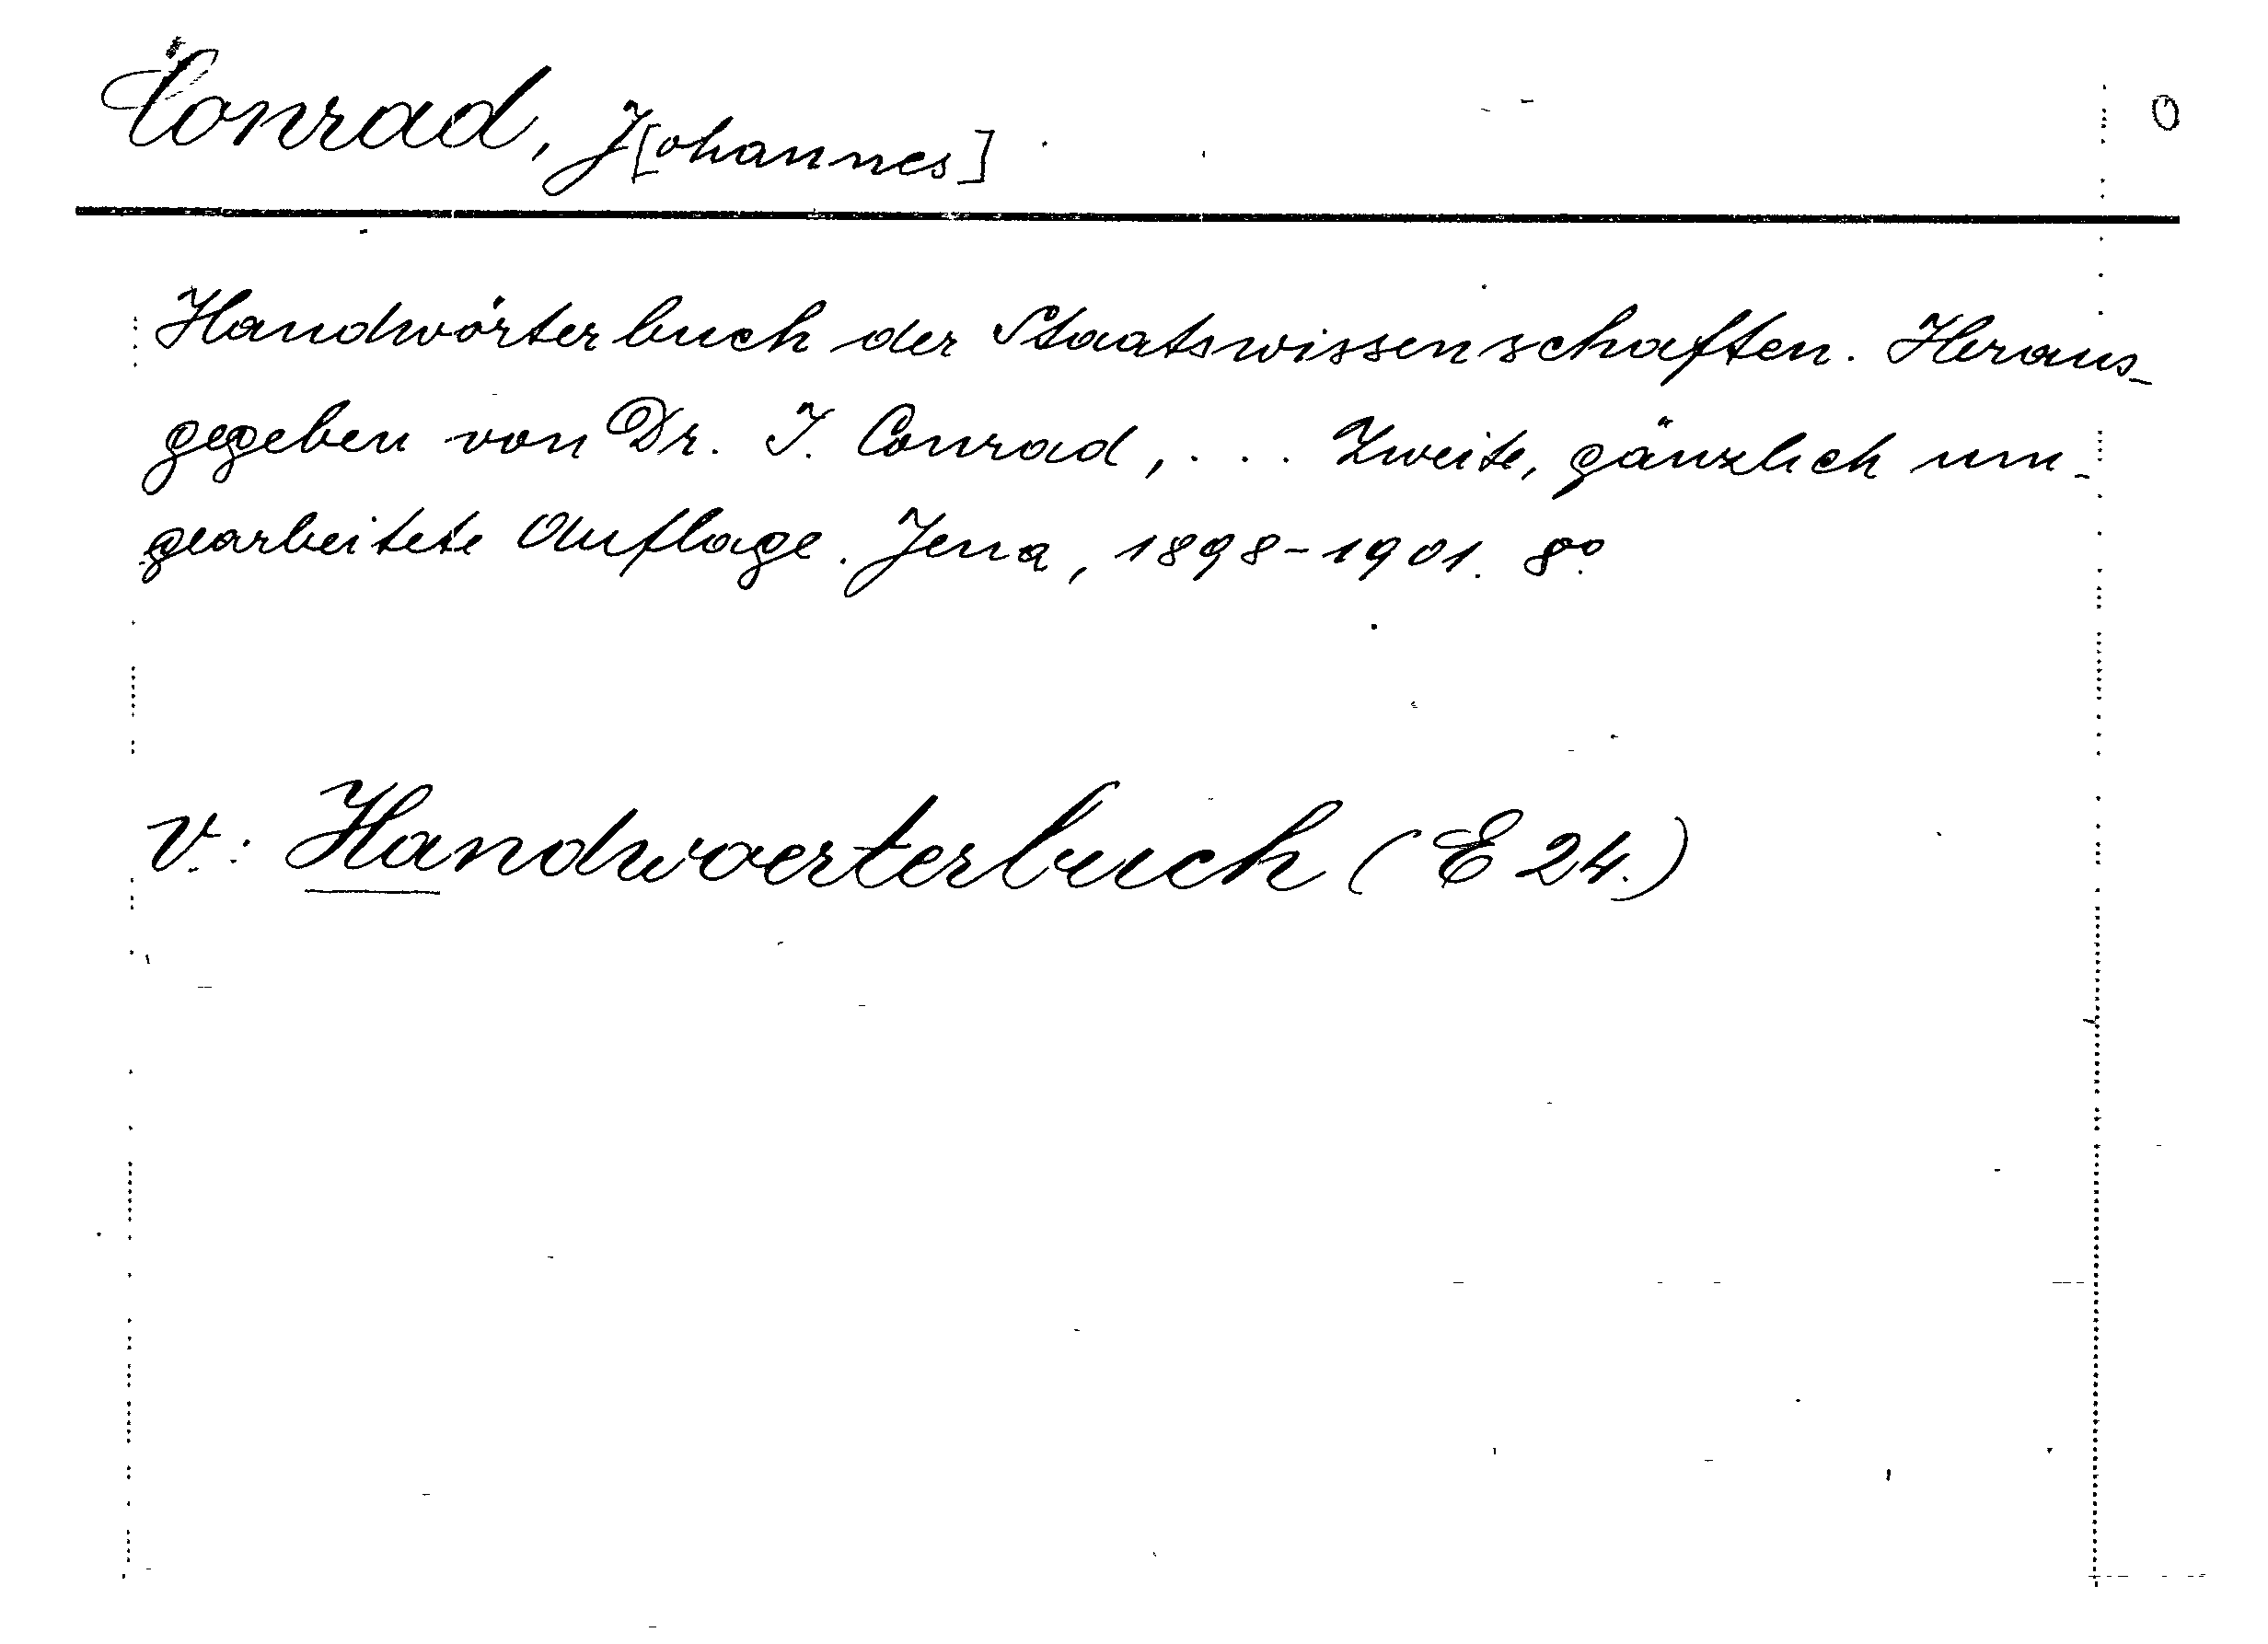 Conrad, J[ohannes] 0
Handwörterbuch der Staatswissenschaften. Heraus-
gegeben von Dr. J. Conrad, ... Zweite, gänzlich um-
gearbeitete Auflage. Jena, 1898-1901. 8º.
V.: Handwoerterbuch (E 24.)